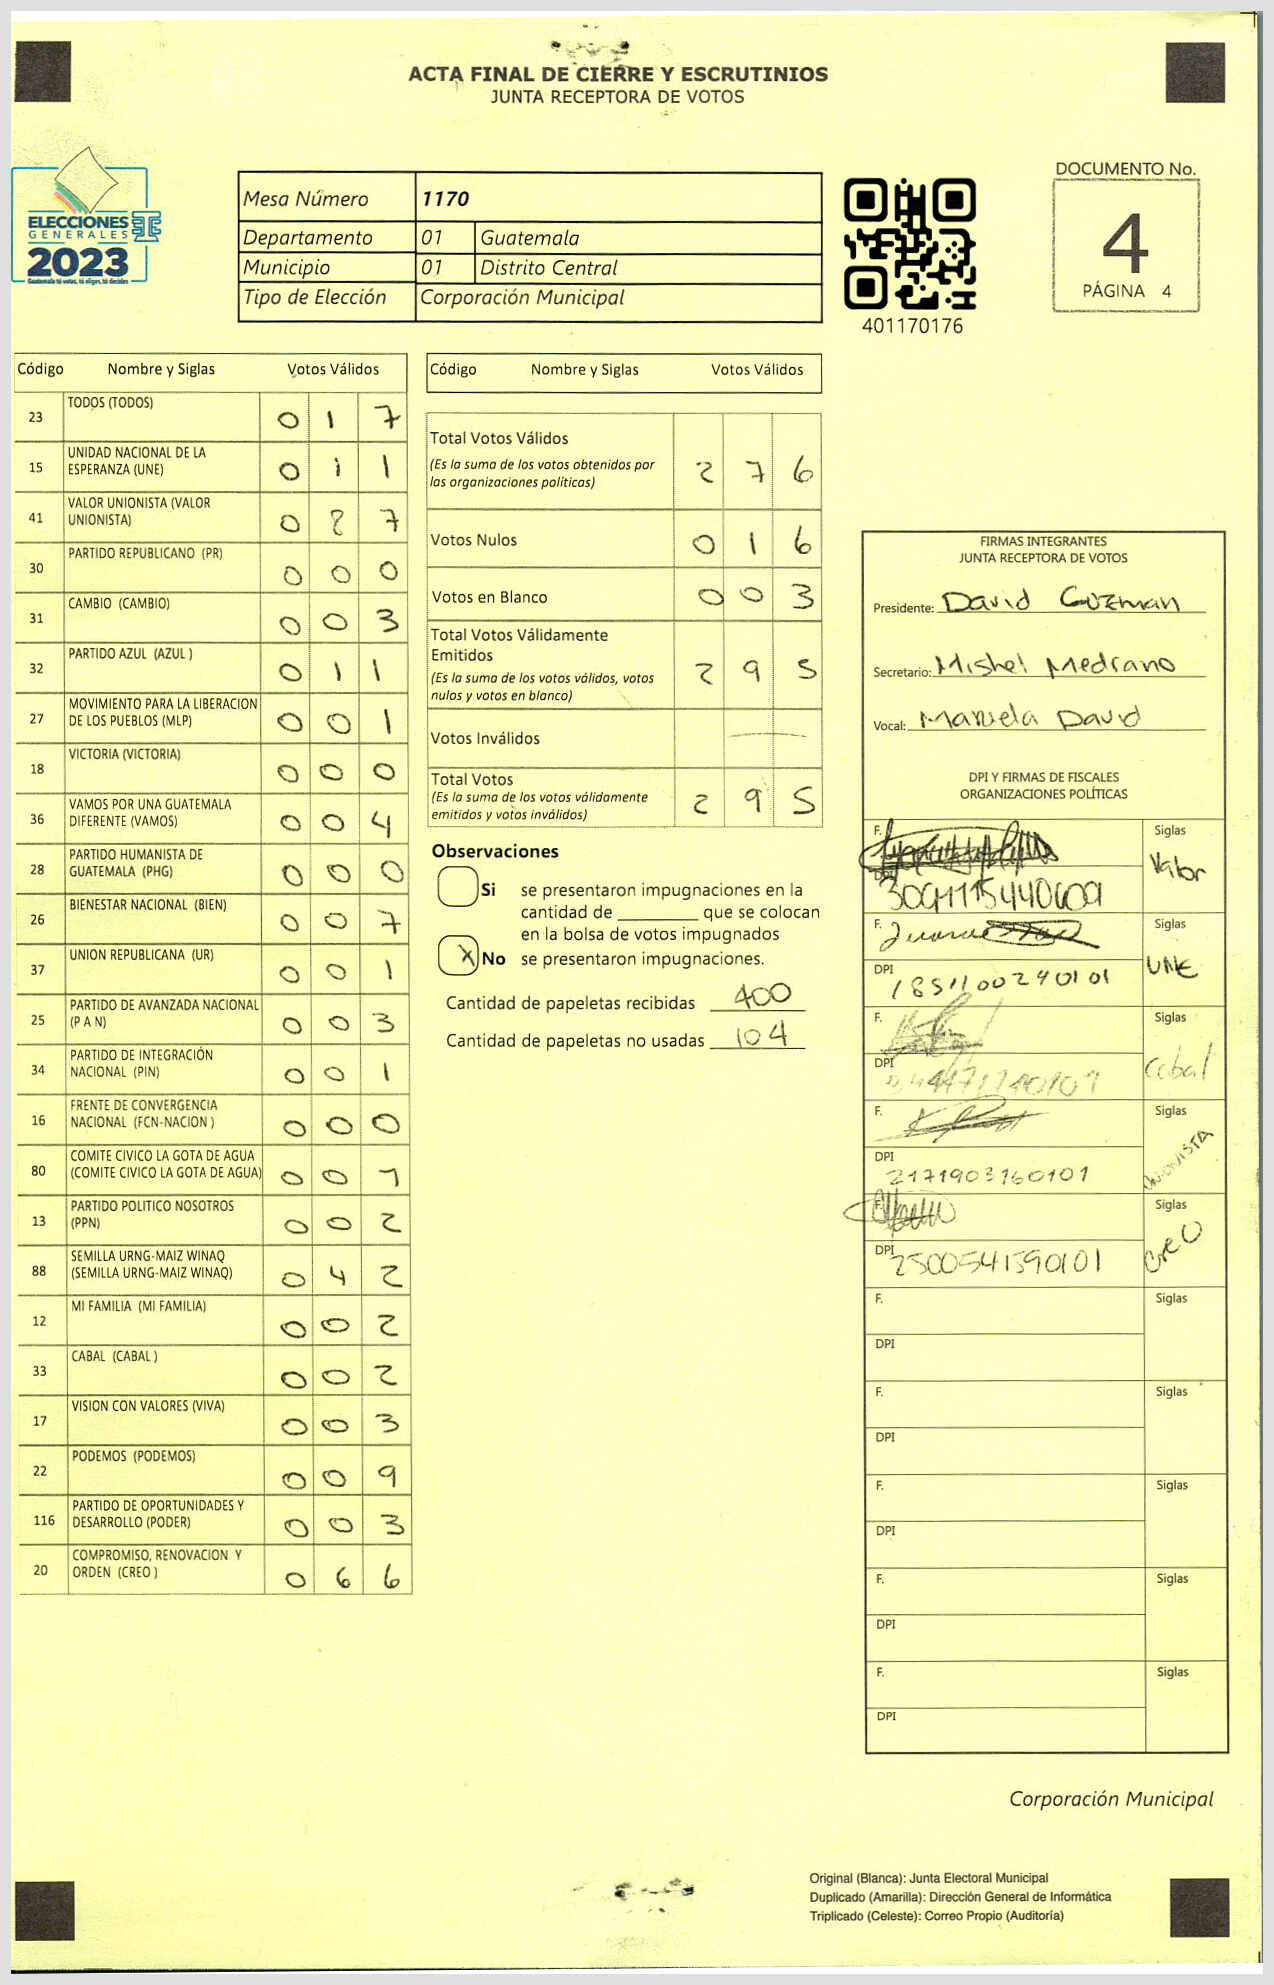 ACTA FINAL DE CIERRE Y ESCRUTINIOS
JUNTA RECEPTORA DE VOTOS
ELECCIONES
GENERALES
2023
Guatemala tú votas, tú eliges, tú decides
Mesa Número 1170
Departamento 01 Guatemala
Municipio 01 Distrito Central
Tipo de Elección Corporación Municipal
401170176
DOCUMENTO No.
4
PÁGINA 4
Código Nombre y Siglas Votos Válidos
23 TODOS (TODOS) 0 1 7
15 UNIDAD NACIONAL DE LA ESPERANZA (UNE) 0 1 1
41 VALOR UNIONISTA (VALOR UNIONISTA) 0 8 7
30 PARTIDO REPUBLICANO (PR) 0 0 0
31 CAMBIO (CAMBIO) 0 0 3
32 PARTIDO AZUL (AZUL ) 0 1 1
27 MOVIMIENTO PARA LA LIBERACION DE LOS PUEBLOS (MLP) 0 0 1
18 VICTORIA (VICTORIA) 0 0 0
36 VAMOS POR UNA GUATEMALA DIFERENTE (VAMOS) 0 0 4
28 PARTIDO HUMANISTA DE GUATEMALA (PHG) 0 0 0
26 BIENESTAR NACIONAL (BIEN) 0 0 7
37 UNION REPUBLICANA (UR) 0 0 1
25 PARTIDO DE AVANZADA NACIONAL (P A N) 0 0 3
34 PARTIDO DE INTEGRACIÓN NACIONAL (PIN) 0 0 1
16 FRENTE DE CONVERGENCIA NACIONAL (FCN-NACION ) 0 0 0
80 COMITE CIVICO LA GOTA DE AGUA (COMITE CIVICO LA GOTA DE AGUA) 0 0 1
13 PARTIDO POLITICO NOSOTROS (PPN) 0 0 2
88 SEMILLA URNG-MAIZ WINAQ (SEMILLA URNG-MAIZ WINAQ) 0 4 2
12 MI FAMILIA (MI FAMILIA) 0 0 2
33 CABAL (CABAL ) 0 0 2
17 VISION CON VALORES (VIVA) 0 0 3
22 PODEMOS (PODEMOS) 0 0 9
116 PARTIDO DE OPORTUNIDADES Y DESARROLLO (PODER) 0 0 3
20 COMPROMISO, RENOVACION Y ORDEN (CREO ) 0 6 6
Código Nombre y Siglas Votos Válidos
Total Votos Válidos 2 7 6
(Es la suma de los votos obtenidos por
las organizaciones políticas)
Votos Nulos 0 1 6
Votos en Blanco 0 0 3
Total Votos Válidamente
Emitidos 2 9 5
(Es la suma de los votos válidos, votos
nulos y votos en blanco)
Votos Inválidos
Total Votos 2 9 5
(Es la suma de los votos válidamente
emitidos y votos inválidos)
Observaciones
Si se presentaron impugnaciones en la
cantidad de ________ que se colocan
en la bolsa de votos impugnados
X No se presentaron impugnaciones.
Cantidad de papeletas recibidas 400
Cantidad de papeletas no usadas 104
FIRMAS INTEGRANTES
JUNTA RECEPTORA DE VOTOS
Presidente: David Guzman
Secretario: Mishel Medrano
Vocal: Manuela David
DPI Y FIRMAS DE FISCALES
ORGANIZACIONES POLÍTICAS
F. Siglas
Valor
DPI
F. Siglas
DPI 1851100290101 UNE
F. Siglas
DPI Cabal
F. Siglas
DPI 2171903160101 UNIONISTA
F. Siglas
DPI 2500541590101 CREO
F. Siglas
DPI
F. Siglas
DPI
F. Siglas
DPI
F. Siglas
DPI
F. Siglas
DPI
Corporación Municipal
Original (Blanca): Junta Electoral Municipal
Duplicado (Amarilla): Dirección General de Informática
Triplicado (Celeste): Correo Propio (Auditoría)